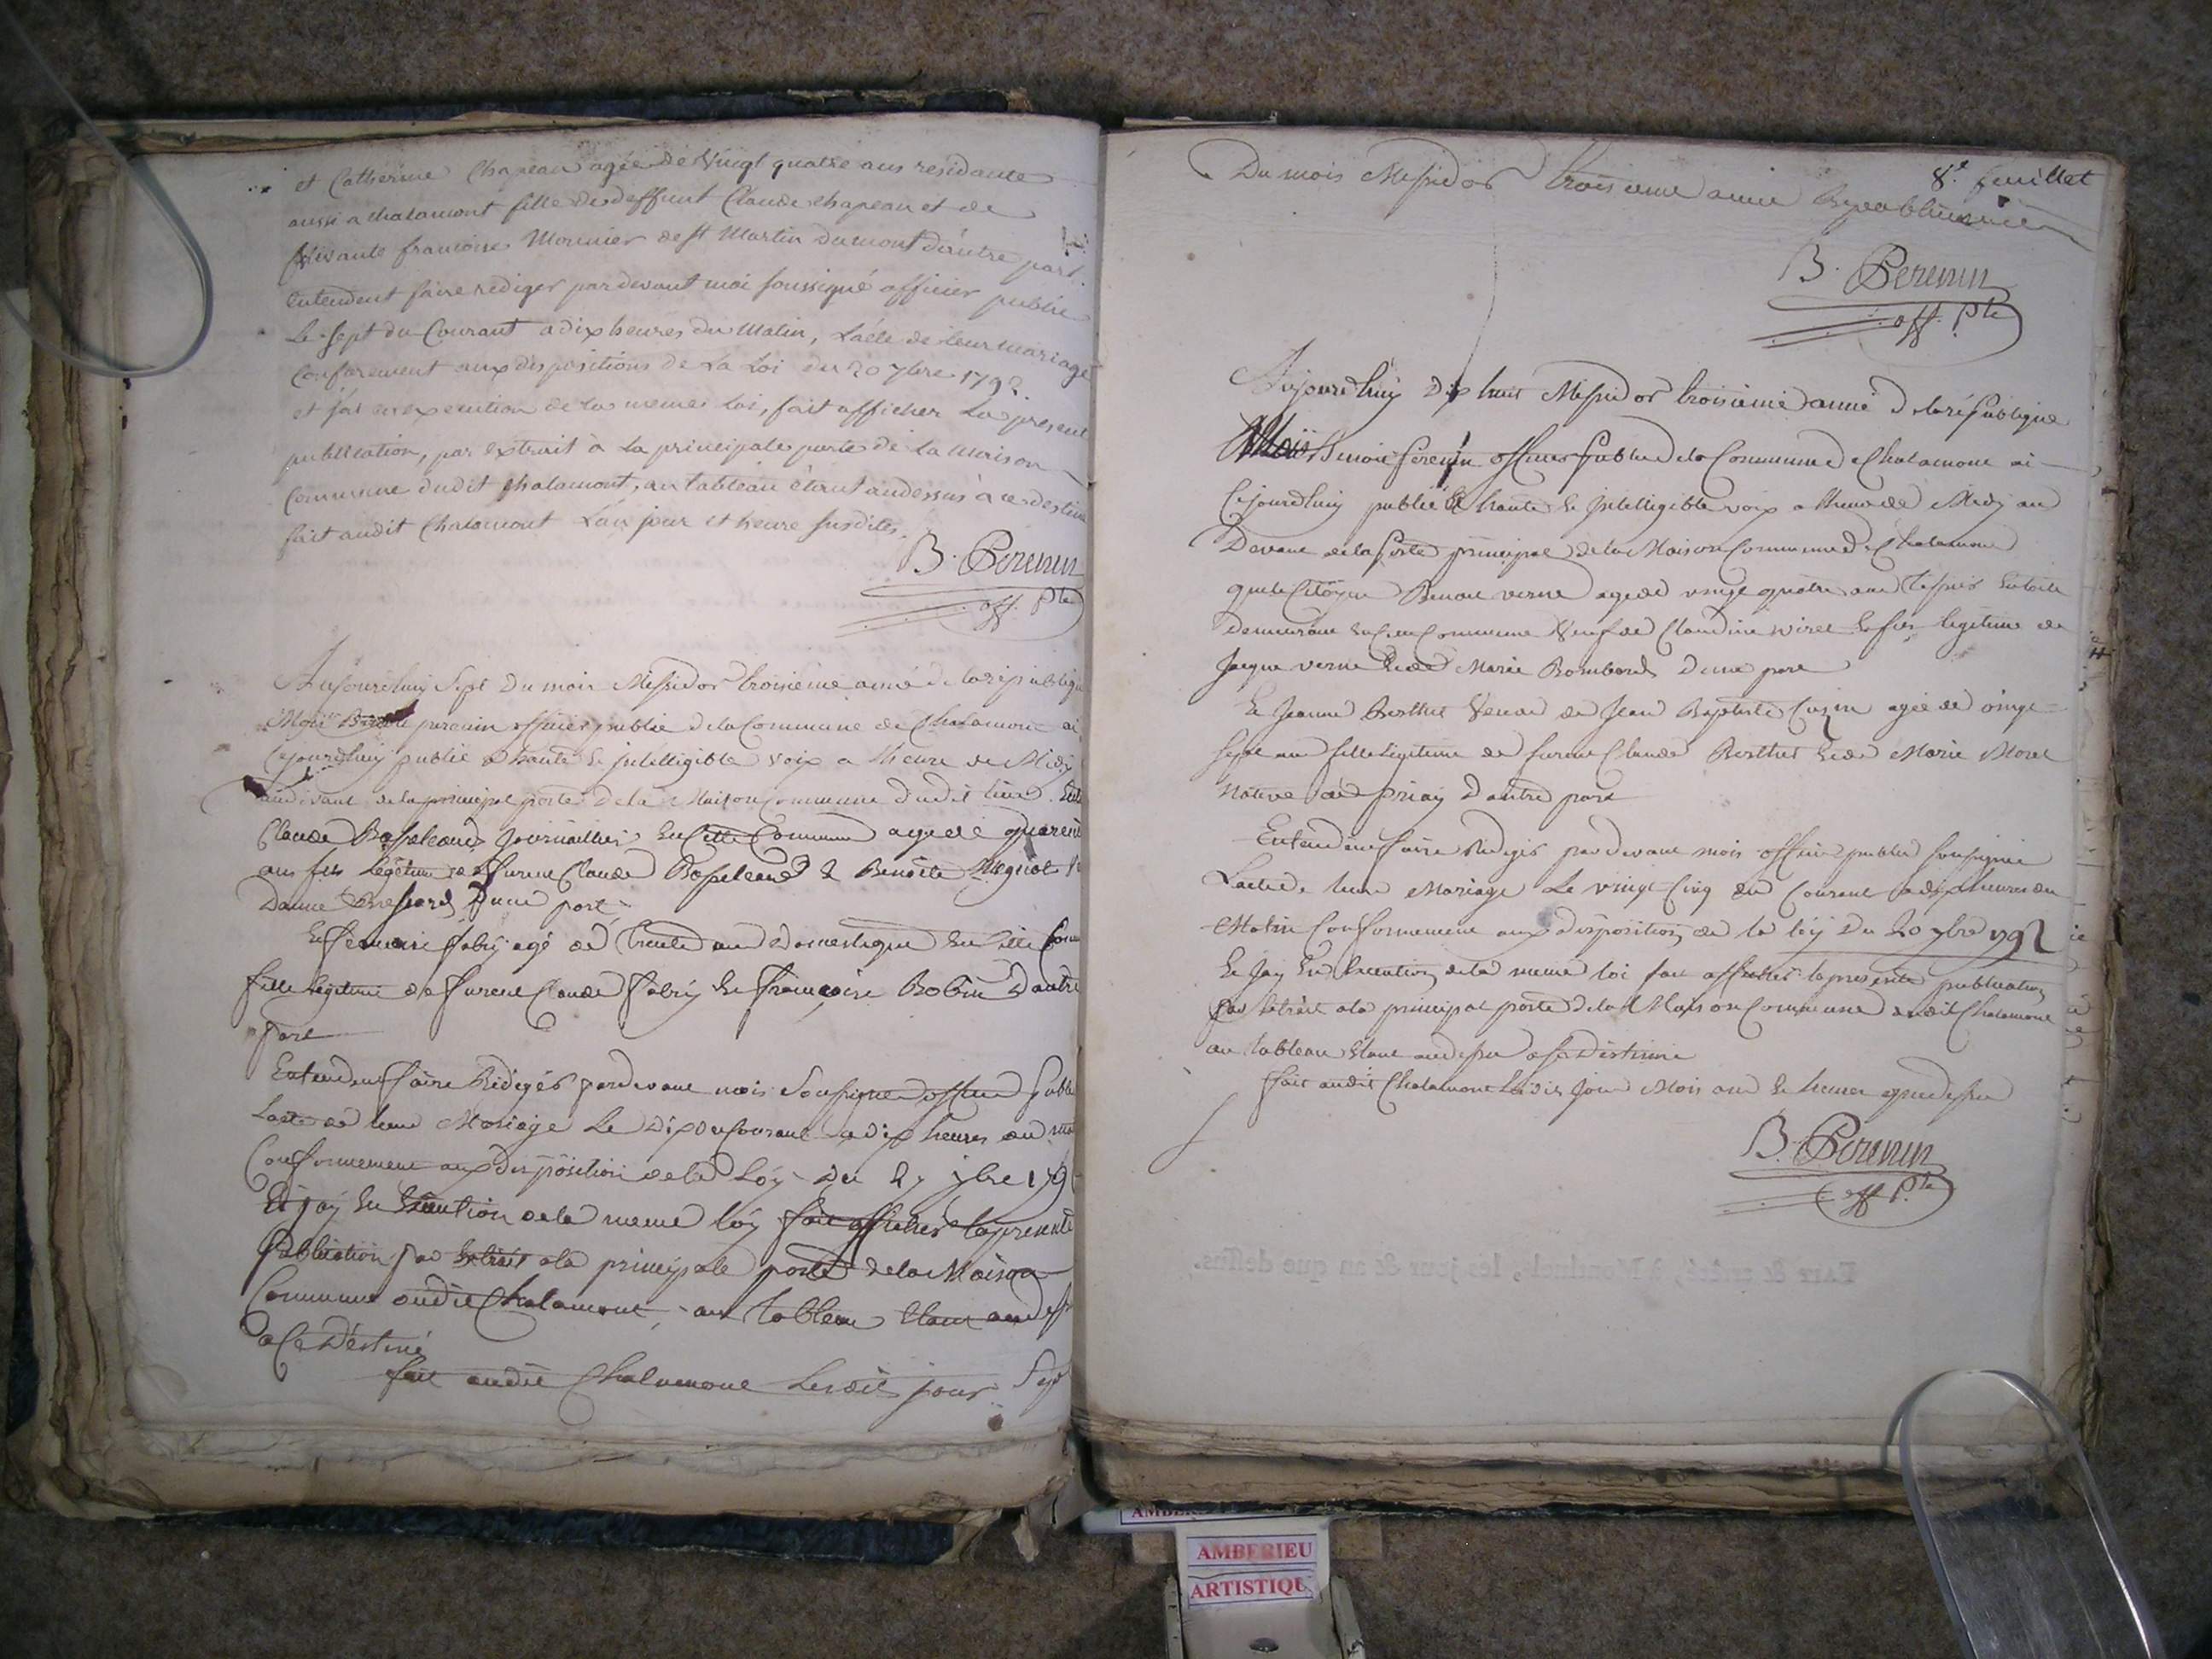 et Catherine Chapeau agée de Vingt quatre ans residante
aussi a chalamont fille de deffunt Claude chapeau et de
vivante francoise Monnier de st Martin dumont d'autre part.
Entendent faire rediger pardevant moi soussigné officier public
Le sept du Courant a dix heures du Matin, L'acte de leur mariage
Conforement aux dispositions de La Loi du 20 7bre 1792
et j'ai en execution de la meme Loi, fait afficher La present
publication, par extrait à la principale porte de la Maison
Commune dudit chalamont, au tableau étant audessus à ce destiné
fait audit Chalamont Lan jour et heure susdites.
B. Perenin
off. Ple
Aujourdhuy Sept Du mois Messidor troisieme anné de la republiq
Moi perenin officier public de la Commune de Chalamont ai
Cejourdhuy publié a haute & jntelligible voix a l'heure de Midy
audevant de la principal porte de la Maison Commune dudit lieu
Claude Journaillier en Cette Commune age de quarent
ans fils legitime de furent Claude & Benoite
D'une part
Et fabry agé de trente ans domestique en Cette Com
fille legitime de furent Claude fabry & françoise Robin D'autre
part
Entendent faire Redigér pardevant mois Sousigne officier public
L'acte de leur Mariage Le Dix du Courant a dix heures du ma
Conformement aux disposition de la Loy Du 2 7bre 179
Et j'ay en Execution de la meme loy fait afficher la presente
Publication par Extrait a la principale porte de la Maison
Commune audit Chalamont, au tableau Etant audess
a Ce Déstiné
fait audit Chalamont Lesdit jour Sept
8e. feuillet
Du mois Messidor troisieme année Republicaine
B. Perenin
off. Ple
Aujourdhuy Dix huit Messidor troisieme anné de la république
Benoit perenin officier public de la Commune de Chalamont ai
Cejourdhuy publié a haute & jntelligible voix a l'heure de Midy au
Devant de la porte principal de la Maison Commune de Chalamont
que le Citoyen Benoit verne age de vingt quatre ans
demeurant Commune Veuf de Claudine & fils legitime de
Jacque verne & de Marie Bombard D'une part
Et Jeanne Berthet Veuve de Jean Baptiste Cuzin agée de vingt
sept ans fille legitime de furent Claude Berthet & de Marie Morel
Native de priay D'autre part
Entendent faire Rédigér pardevant mois officier public sousigné
L'acte de leur Mariage Le vingt Cinq du Courant a dix heures du
Matin Conformement aux disposition de la loy Du 20 7bre 1792
Et j'ay En Execution de la meme loi fait afficher la presente publication
Par Extrait a la principal porte de la Maison Commune audit Chalamont
au tableau Etant audessu a se Destinné
fait audit Chalamont Lesdit jour Mois ans & heures que dessu
B. Perenin
off P.le
AMBERIEU
ARTISTIQU